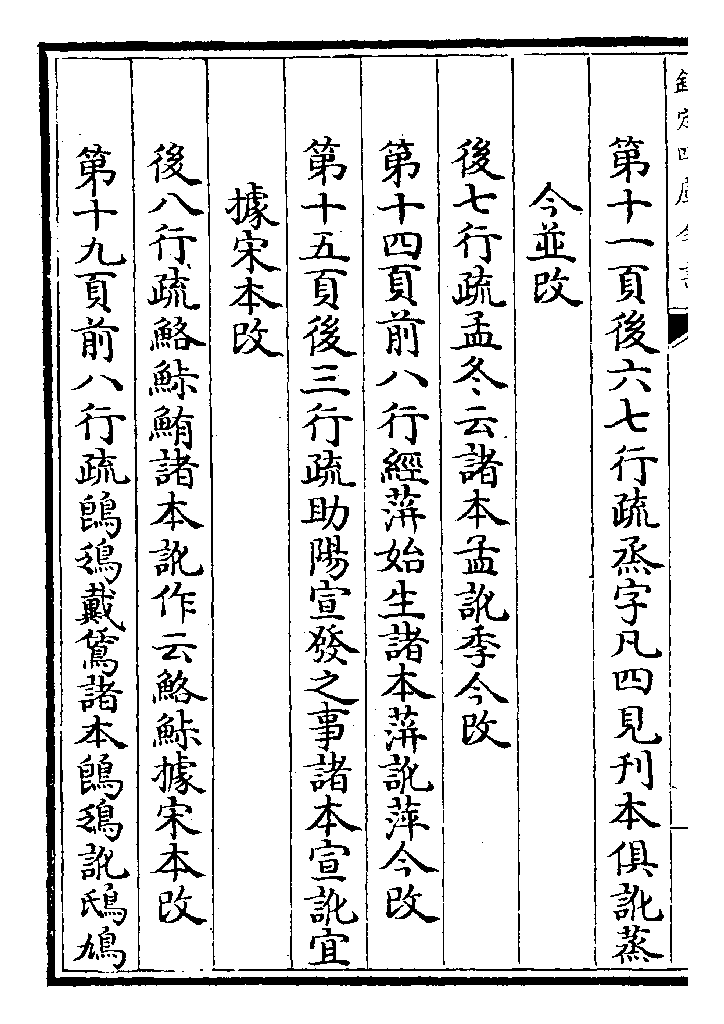 欽定四庫全書
第十一頁後六七行疏烝字凡四見刊本俱訛蒸
今並改
後七行疏孟冬云諸本孟訛季今改
第十四頁前八行經蓱始生諸本蓱訛萍今改
第十五頁後三行疏助陽宣發之事諸本宣訛宜
據宋本改
後八行疏鮥鮛鮪諸本訛作云鮥鮛據宋本改
第十九頁前八行疏鴖鵶戴鵀諸本鴖鵶訛鴟鳩